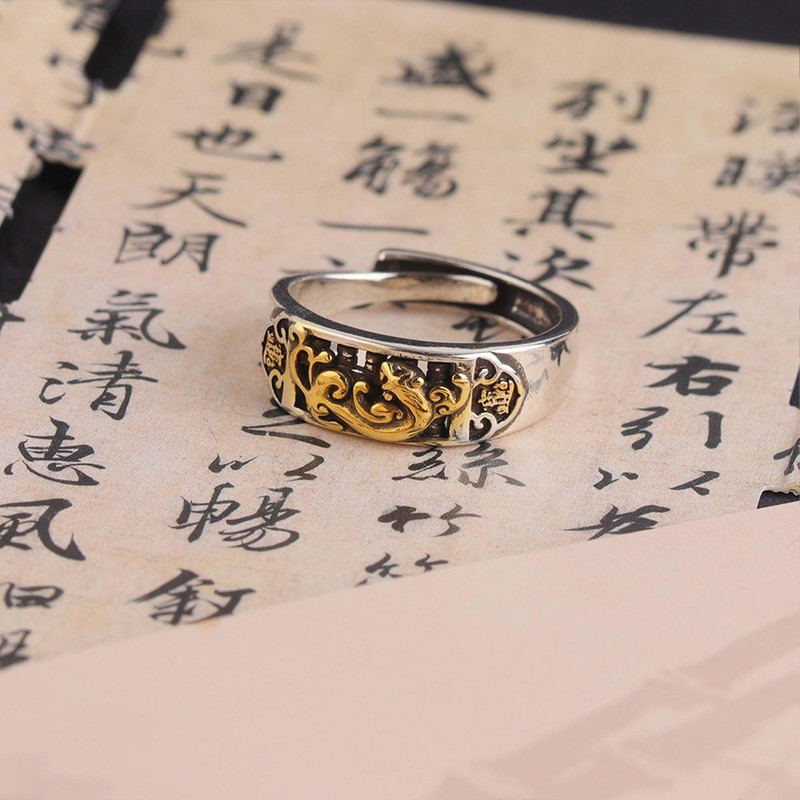 映帶左右引以為
列坐其次
絲竹管
盛一觴一
以暢敘
是日也天朗氣清惠風